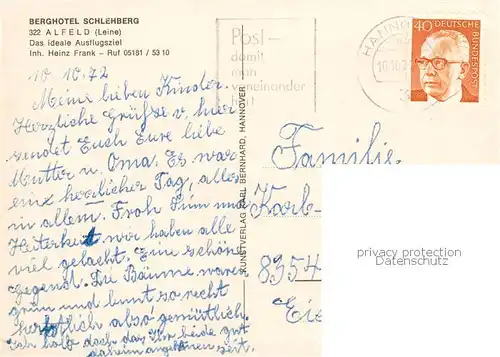 BERGHOTEL SCHLEHBERG
322 ALFELD (Leine)
Das ideale Ausflugsziel
Inh. Heinz Frank - Ruf 05181 / 5310
10. 10. 72
Meine lieben Kinder.
Herzliche Grüße v. hier
sendet Euch Eure liebe
Mutter u. Oma. Es war
ein herrlicher Tag, alles
in allem. Froh Sinn und
Heiterkeit wir haben alle
viel gelacht. Eine schöne
Gegend. Die Bäume waren
grün und bunt so recht
herbstlich also gemütlich.
Ich hoffe doch das Ihr beide gut
daheim angekommen seit.
KUNSTVERLAG CARL BERNHARD, HANNOVER
Post-
damit
man
voneinander
hört
HANNO
10.10.7
40 DEUTSCHE
BUNDESPOST
Familie
Karb-
8354
Ei
privacy protection
Datenschutz